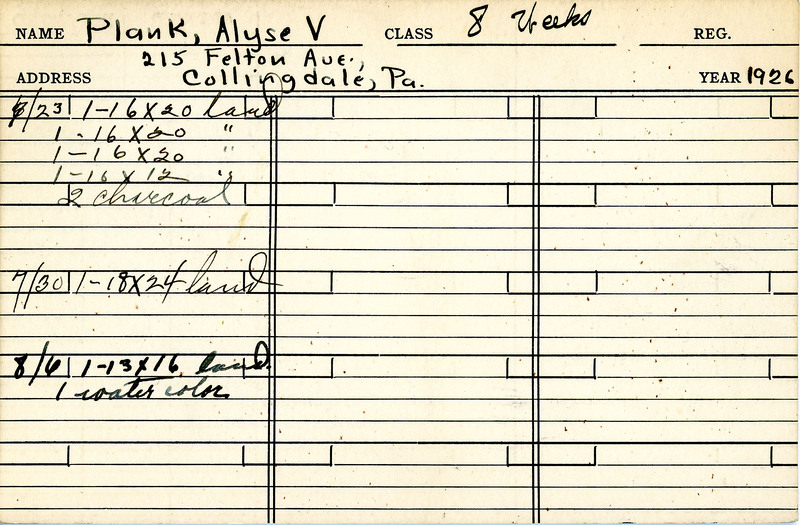 NAME Plank, Alyse V CLASS 8 Weeks REG.
215 Felton Ave.,
ADDRESS Collingdale, Pa. YEAR 1926
/23 1-16X20 land
1-16X20 "
1-16X20 "
1-16X12 "
2 charcoal
7/30 1-18X24 land
8/6 1-13X16 land
1 water color